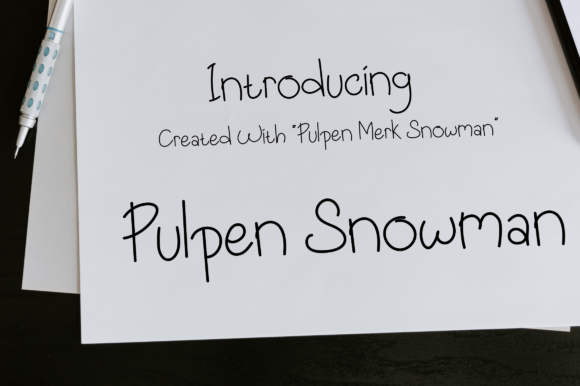 Introducing
Created With "Pulpen Merk Snowman"
Pulpen Snowman